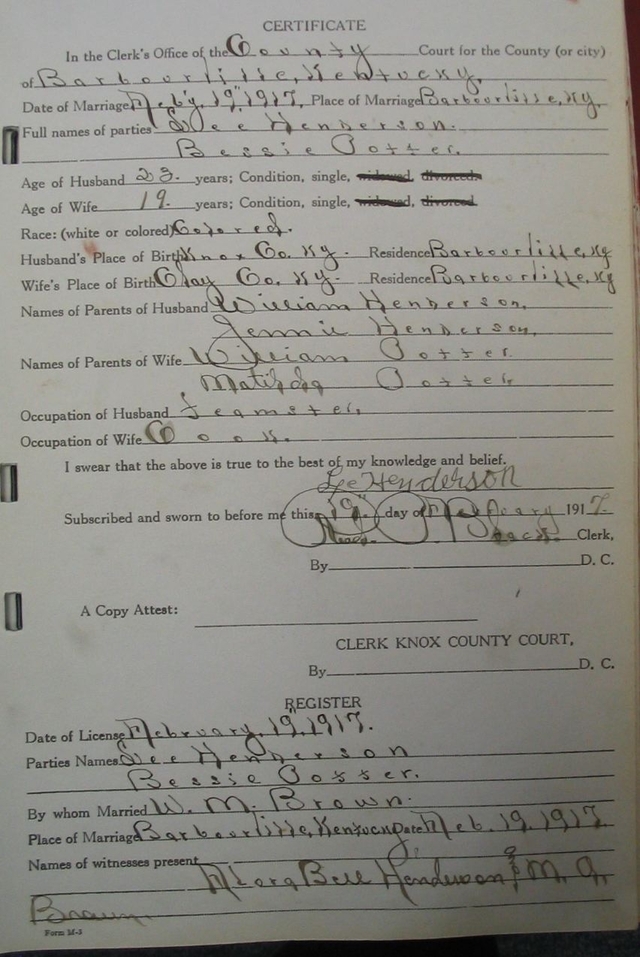 CERTIFICATE
In the Clerk's Office of the County Court for the County (or city)
of Barbourville, Kentucky.
Date of Marriage Feb'y. 19" 1917. Place of Marriage Barbourville, Ky.
Full names of parties Lee Henderson.
Bessie Potter.
Age of Husband 23. years; Condition, single, widowed, divorced.
Age of Wife 19. years; Condition, single, widowed, divorced
Race: (white or colored) Colored.
Husband's Place of Birth Knox Co. Ky. Residence Barbourville, Ky
Wife's Place of Birth Clay Co. Ky. Residence Barbourville, Ky
Names of Parents of Husband William Henderson,
Jennie Henderson,
Names of Parents of Wife William Potter.
Matilda Potter
Occupation of Husband Teamster.
Occupation of Wife Cook.
I swear that the above is true to the best of my knowledge and belief.
Lee Henderson
Subscribed and sworn to before me this 19" day of 1917.
Clerk,
By D. C.
A Copy Attest:
CLERK KNOX COUNTY COURT,
By D. C.
REGISTER
Date of License February, 19" 1917.
Parties Names Lee Henderson
Bessie Potter.
By whom Married W. M. Brown.
Place of Marriage Barbourville, Kentucky Date Feb. 19, 1917
Names of witnesses present
Bell Henderson & M. A.
Brown
Form M-3